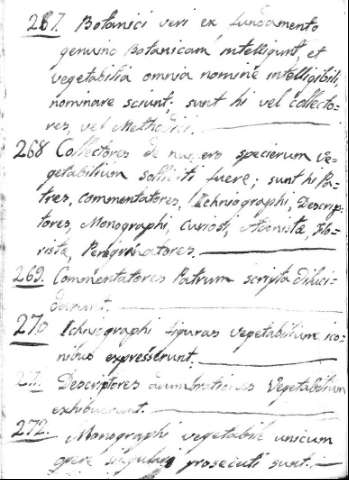 267. Botanici veri ex fundamento
genuino Botanicam intelligunt, et
vegetabilia omnia nomine intelligibili
nominare sciunt; sunt hi vel collecto=
res, vel Methodici.
268 Collectores de numero specierum Ve=
getabilium solliciti fuere; sunt hi Pa=
tres, commentatores, Ichniographi, Descrip=
tores, Monographi, Curiosi, Adonistæ, Flo=
ristæ, Peregrinatores.
269. Commentatores Patrum scripta diluci=
darunt.
270 Ichniographi figuras vegetabilium ico=
nibus expresserunt.
271. Descriptores adumbrationes Vegetabilium
exhibuerunt.
272. Monographi vegetabile unicum
opere singulari prosecuti sunt.